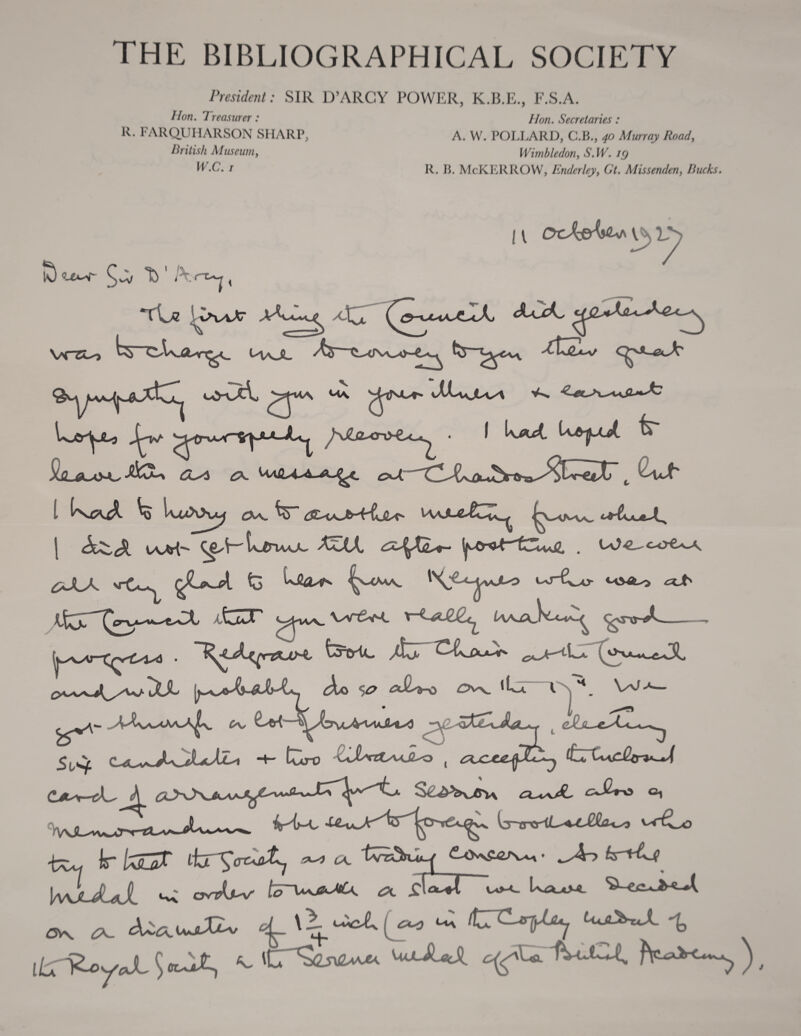 THE BIBLIOGRAPHICAL SOCIETY
President: SIR D'ARCY POWER, K.B.E., F.S.A.
Hon. Treasurer:
R. FARQUHARSON SHARP,
British Museum,
W.C. 1
Hon. Secretaries:
A. W. POLLARD, C.B., 40 Murray Road,
Wimbledon, S.W. 19
R. B. McKERROW, Enderley, Gt. Missenden, Bucks.
11 October 1927
Dear Sir D'Arcy,
The first thing the Council did yesterday
was to charge me to convey to you their great
sympathy with you in your illness & earnest
hopes for your speedy recovery. I had hoped to
leave this as a message at Chandos Street, but
I had to hurry on to another meeting from which
I did not get home till after post time. We were
all very glad to hear from Keynes who was at
the Council that you were really making good
progress. Redgrave took the Chair at the Council
and will probably do so also on the 17th. We
got through a lot of business yesterday, electing
six candidates + two libraries, accepting the inclosed
card of arrangements for the Session and also a
memorandum to be sent to foreign booksellers who
try to treat the Society as a trading concern. As to the
medal in order to make a start we have decided
on a diameter of 1 3/4 inch (as in the Copley medal of
the Royal Society & the Serena medal of the British Academy).